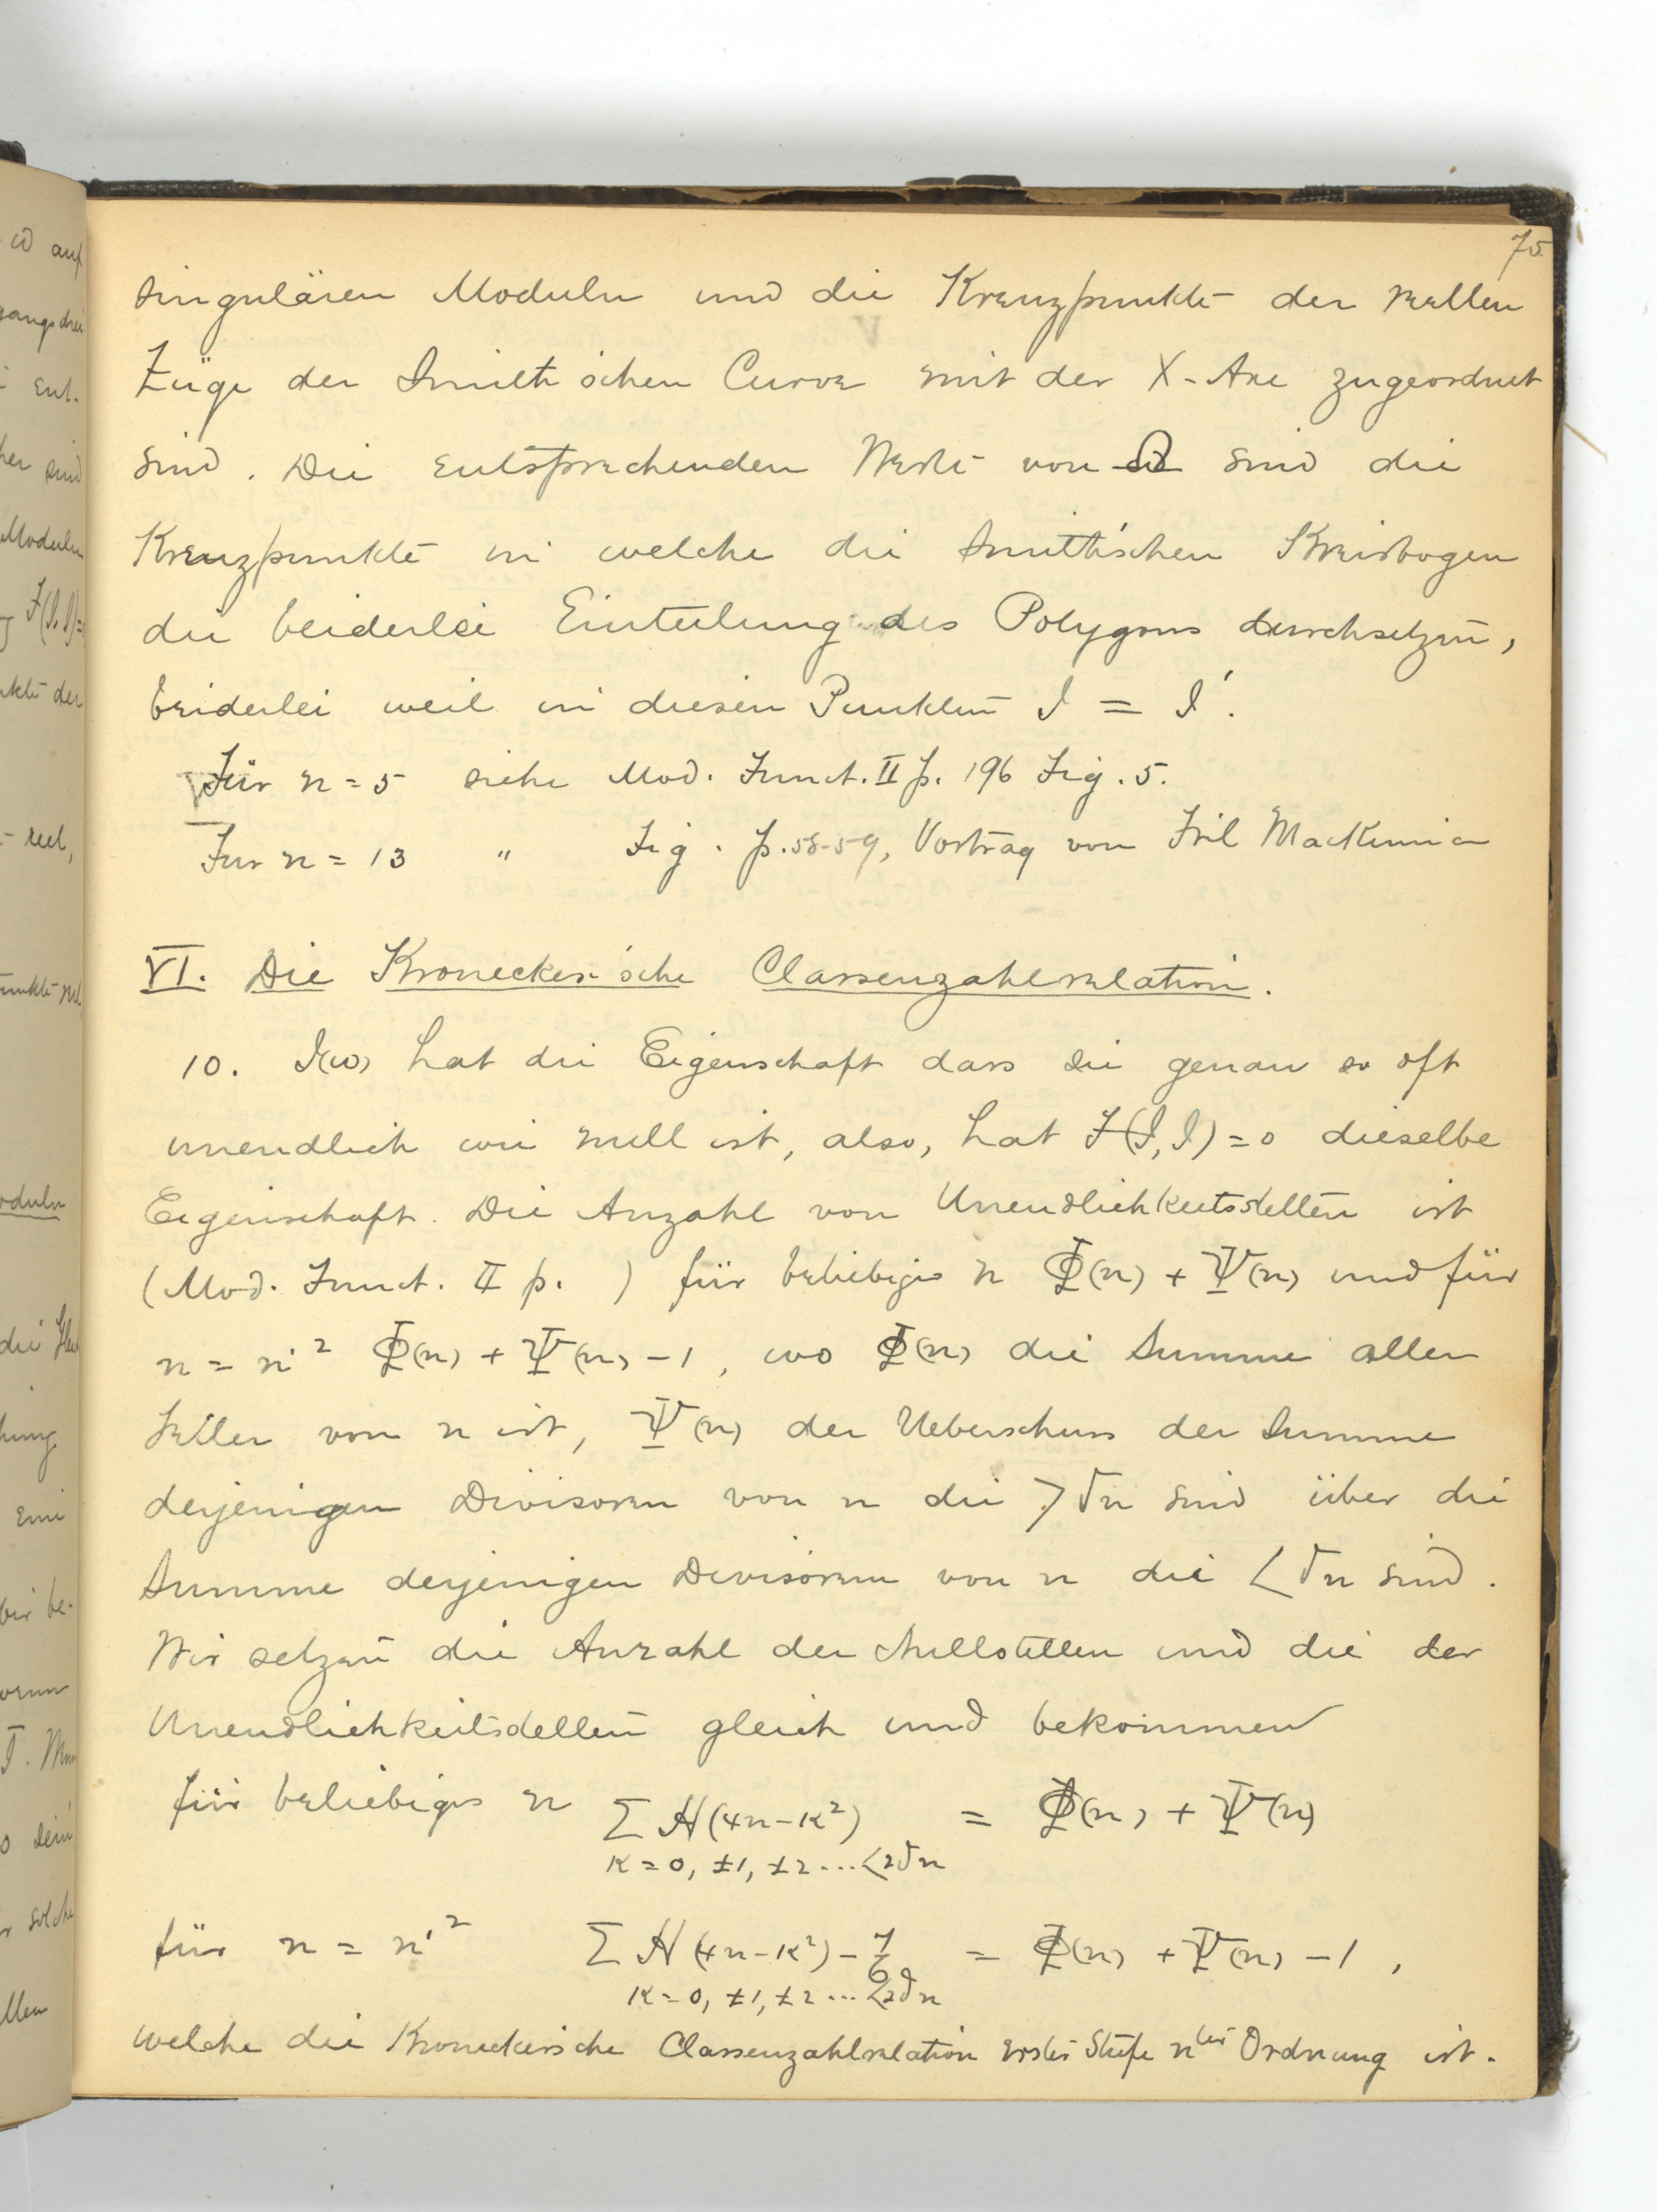 75
singulären Moduln und die Kreuzpunkte der reellen
Züge der Smith'schen Curve mit der X-Axe zugeordnet
sind. Die entsprechenden Werte von ω sind die
Kreuzpunkte in welche die Smith'schen Kreisbogen
die beiderlei Einteilung des Polygons durchsetzen,
beiderlei weil in diesen Punkten J = J'.
Für n = 5 siehe Mod. Funct. II p. 196 Fig. 5.
Fur n = 13 " Fig. p. 58-59, Vortrag von Frl MacKinnion
VI. Die Kronecker'sche Classenzahlrelation.
10. J(ω) hat die Eigenschaft dass sie genau so oft
unendlich wie null ist, also, hat F(J, J) = 0 dieselbe
Eigenschaft. Die Anzahl von Unendlichkeitsstellen ist
(Mod. Funct. II p. ) für beliebiges n Φ(n) + Ψ(n) und für
n = n'² Φ(n) + Ψ(n) - 1, wo Φ(n) die Summe aller
Teiler von n ist, Ψ(n) der Ueberschuss der Summe
derjenigen Divisoren von n die > √n sind über die
Summe derjenigen Divisoren von n die < √n sind.
Wir setzen die Anzahl der Nullstellen und die der
Unendlichkeitsstellen gleich und bekommen
für beliebiges n Σ H(4n-κ²) = Φ(n) + Ψ(n)
κ = 0, ±1, ±2 ... <2√n
für n = n'² Σ H(4n-κ²) - 7/6 = Φ(n) + Ψ(n) - 1,
κ = 0, ±1, ±2 ... <2√n
welche die Kronecker'sche Classenzahlrelation erster Stufe nter Ordnung ist.